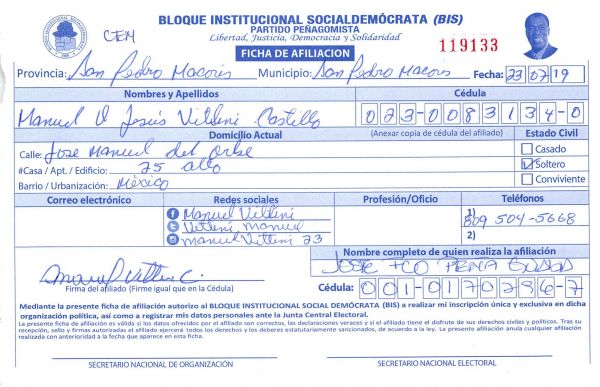 BLOQUE INSTITUCIONAL SOCIALDEMÓCRATA (BIS)
PARTIDO PEÑAGOMISTA
Libertad, Justicia, Democracia y Solidaridad
CEN
FICHA DE AFILIACION
119133
Provincia: San Pedro Macoris Municipio: San Pedro Macoris Fecha: 23/07/19
Nombres y Apellidos Cédula
Manuel D Jesús Vittini Castillo 023-0083134-0
Domicilio Actual (Anexar copia de cédula del afiliado) Estado Civil
Calle: Jose Manuel del Orbe Casado
#Casa / Apt. / Edificio: 75 alto Soltero
Barrio / Urbanización: México Conviviente
Correo electrónico Redes sociales Profesión/Oficio Teléfonos
Manuel Vittini 1) 809 504-5668
Vittini Manuel 2)
manuel Vittini 23
Nombre completo de quien realiza la afiliación
JOSE FCO PEÑA
Manuel Vittini C.
Firma del afiliado (Firme igual que en la Cédula) Cédula: 001-0170286-7
Mediante la presente ficha de afiliación autorizo al BLOQUE INSTITUCIONAL SOCIAL DEMÓCRATA (BIS) a realizar mi inscripción única y exclusiva en dicha
organización política, así como a registrar mis datos personales ante la Junta Central Electoral.
La presente ficha de afiliación es válida si los datos ofrecidos por el afiliado son correctos, las declaraciones veraces y si el afiliado tiene el disfrute de sus derechos civiles y políticos. Tras su
recepción, sello y firmas autorizadas el afiliado ejercerá todos los derechos y los deberes estatutariamente sancionados, de acuerdo a la ley. La presente afiliación anula cualquier afiliación
realizada con anterioridad a la fecha que aparece en esta ficha.
SECRETARIO NACIONAL DE ORGANIZACIÓN SECRETARIO NACIONAL ELECTORAL